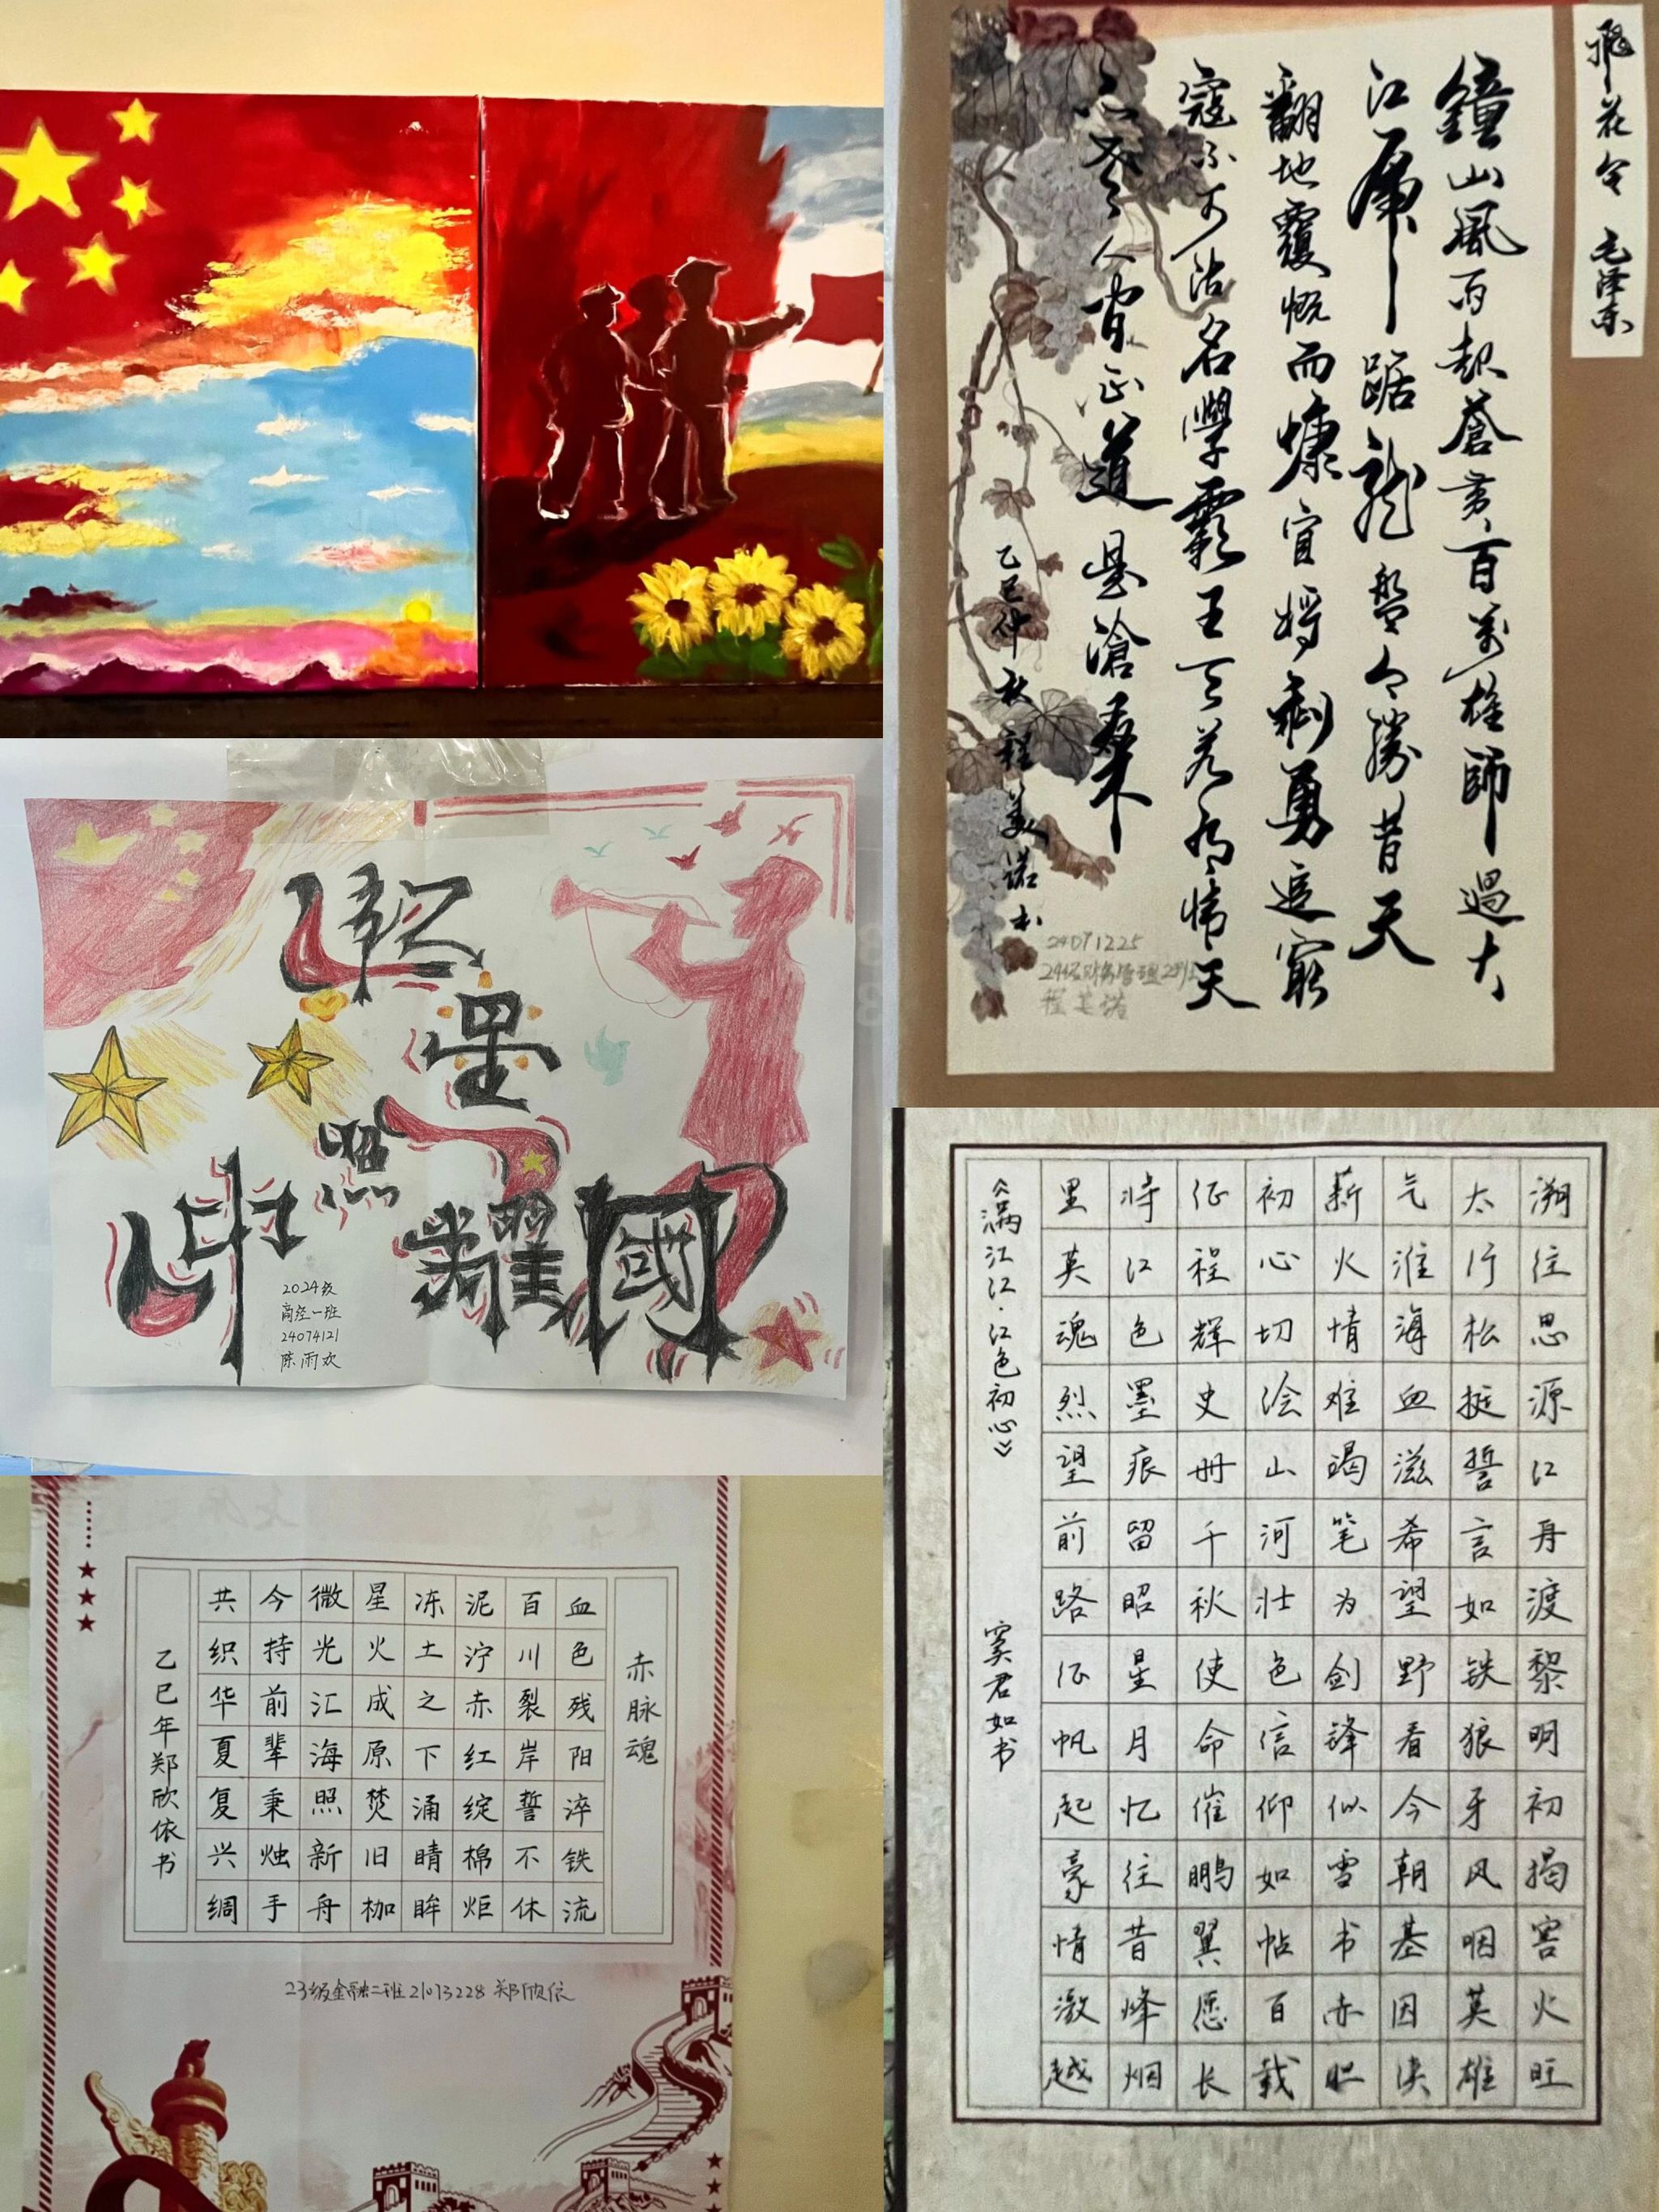 飛花令 毛泽东
鐘山風雨起蒼黃百萬雄師過大
江虎踞龍盤今勝昔天
翻地覆慨而慷宜將剩勇追窮
寇不可沽名學霸王天若有情天
亦老人間正道是滄桑
乙巳仲秋程美諾书
24071225
24级财务管理2班
程美诺
红
墨
照
中耀國
2024级
商经一班
24074121
陈雨欢
赤脉魂
血色残阳淬铁流
百川裂岸誓不休
泥泞赤红绽棉炬
冻土之下涌睛眸
星火成原焚旧枷
微光汇海照新舟
今持前辈秉烛手
共织华夏复兴绸
乙巳年郑欣依书
23级金融二班21073228 郑欣依
溯往思源红舟渡黎明初揭窖火旺
太行松挺誓言如铁狼牙风咽英雄
气淮海血滋希望野看今朝基因决
薪火情难竭笔为剑锋似雪书赤胆
初心切绘山河壮色信仰如帖百载
征程辉史册千秋使命催鹏翼愿长
将红色墨痕留昭星月忆往昔烽烟
里英魂烈望前路征帆起豪情激越
《满江红·红色初心》 窦君如书